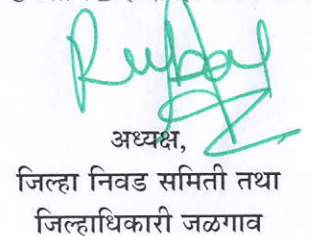 अध्यक्ष,
जिल्हा निवड समिती तथा
जिल्हाधिकारी जळगाव